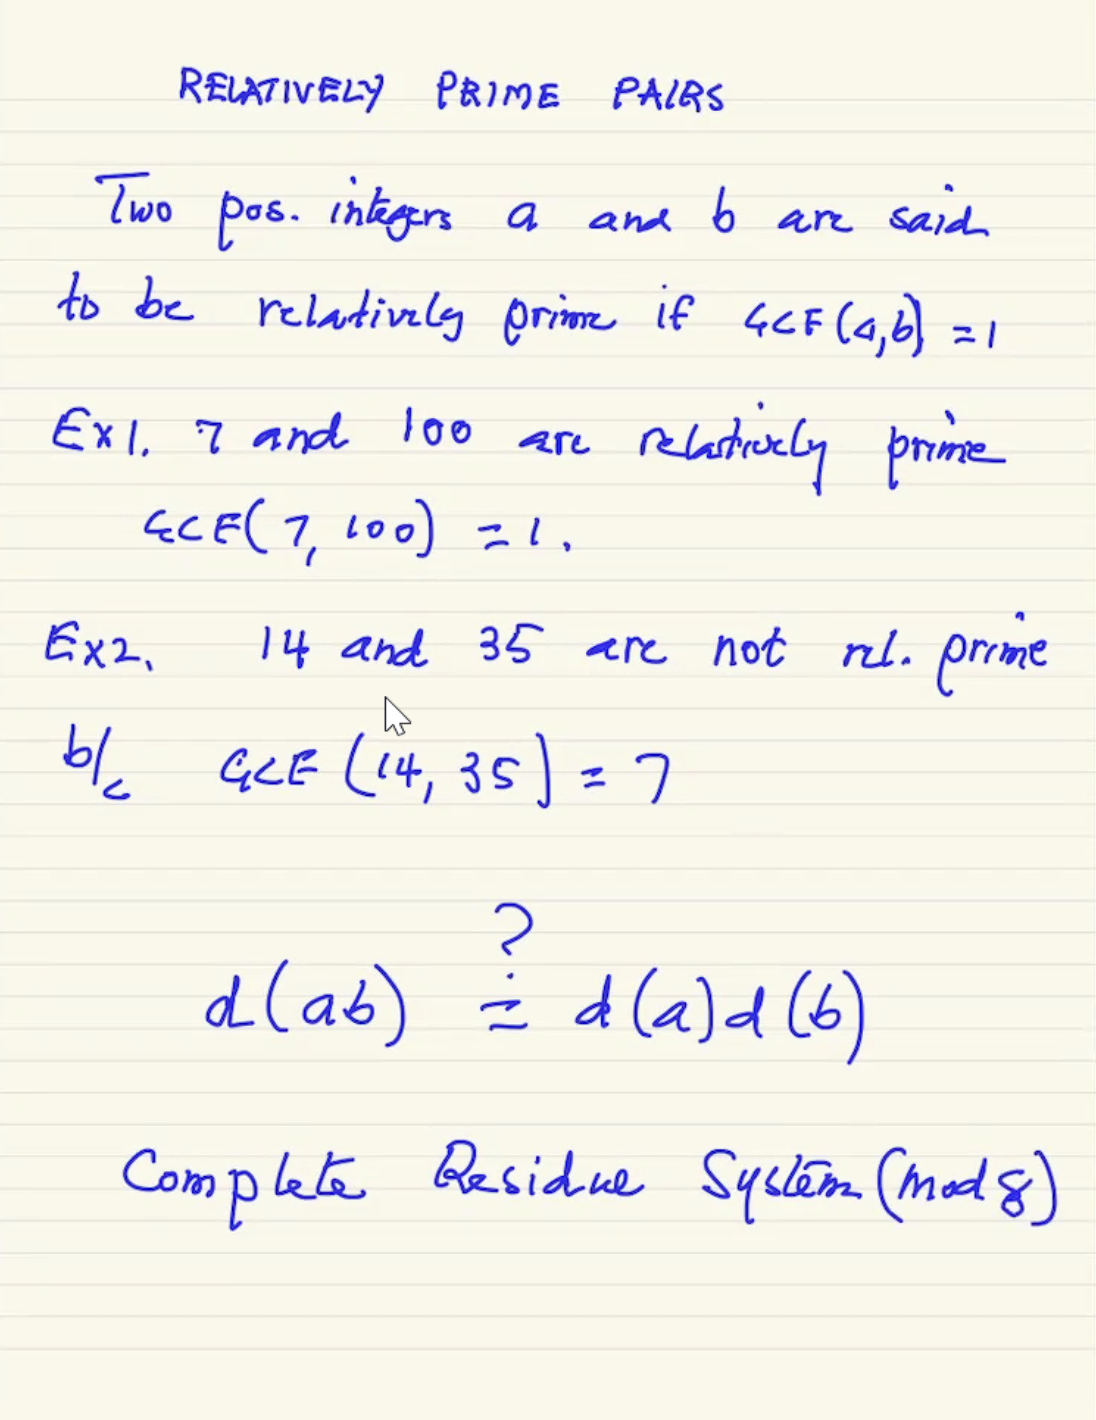 RELATIVELY PRIME PAIRS
Two pos. integers a and b are said
to be relatively prime if GCF(a,b) = 1
Ex1. 7 and 100 are relatively prime
GCF(7, 100) = 1.
Ex2. 14 and 35 are not rel. prime
b/c GCF (14, 35) = 7
?
d(ab) = d(a)d(b)
Complete Residue System (mod 8)